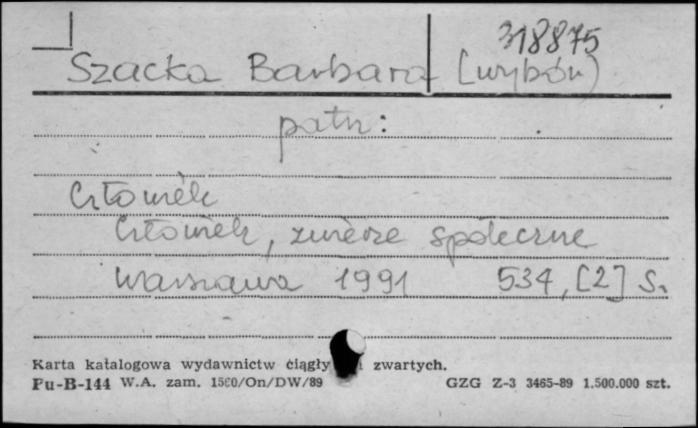 318875
Szacka Barbara (wybór)
patrz:
Człowiek
Człowiek, zwierzę społeczne
Warszawa 1991 534, [2] s.
Karta katalogowa wydawnictw ciągły i zwartych.
Pu-B-144 W.A. zam. 1560/On/DW/89 GZG Z-3 3465-89 1.500.000 szt.